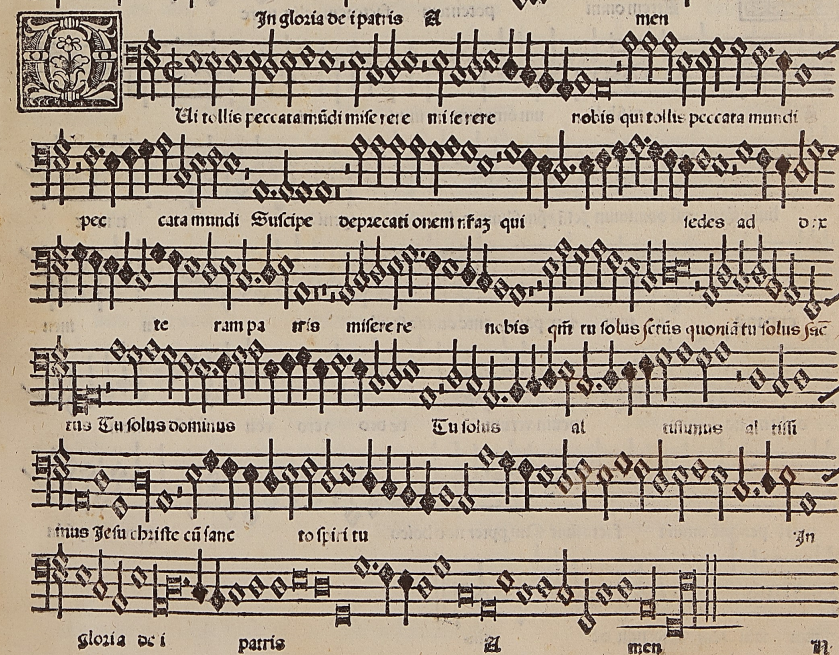 In gloria de i patris A men
Ui tollis peccata mūdi mise rere mi se rere nobis qui tollis peccata mundi
pec cata mundi Suscipe deprecati onem qui sedes ad
te ram pa tris misere re nobis qm̄ tu solus sctūs quoniā tu solus sac
tus Tu solus dominus Tu solus al tissimus al tissi
mus Jesu christe cū sanc to spiri tu In
gloria de i patris A men